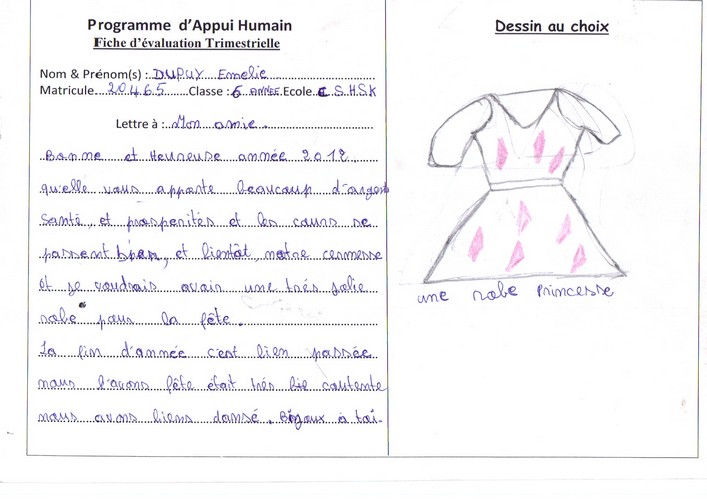 Programme d'Appui Humain
Fiche d'évaluation Trimestrielle
Nom & Prénom(s) : DUPUY Emelie
Matricule 20465 Classe : 6 ANNEE Ecole C S.H.S.K
Lettre à : Mon amie
Bonne et Heureuse année 2012
qu'elle vous apporte beaucoup d'argent
Santé et prosperités et les cours se
passent bien, et bientôt notre cermesse
et je voudrais avoir une très jolie
robe pour la fête.
La fin d'année c'est bien passée
nous l'avons fête était très bie contente
nous avons biens dansé. Bigoux à toi.
Dessin au choix
une robe Princesse